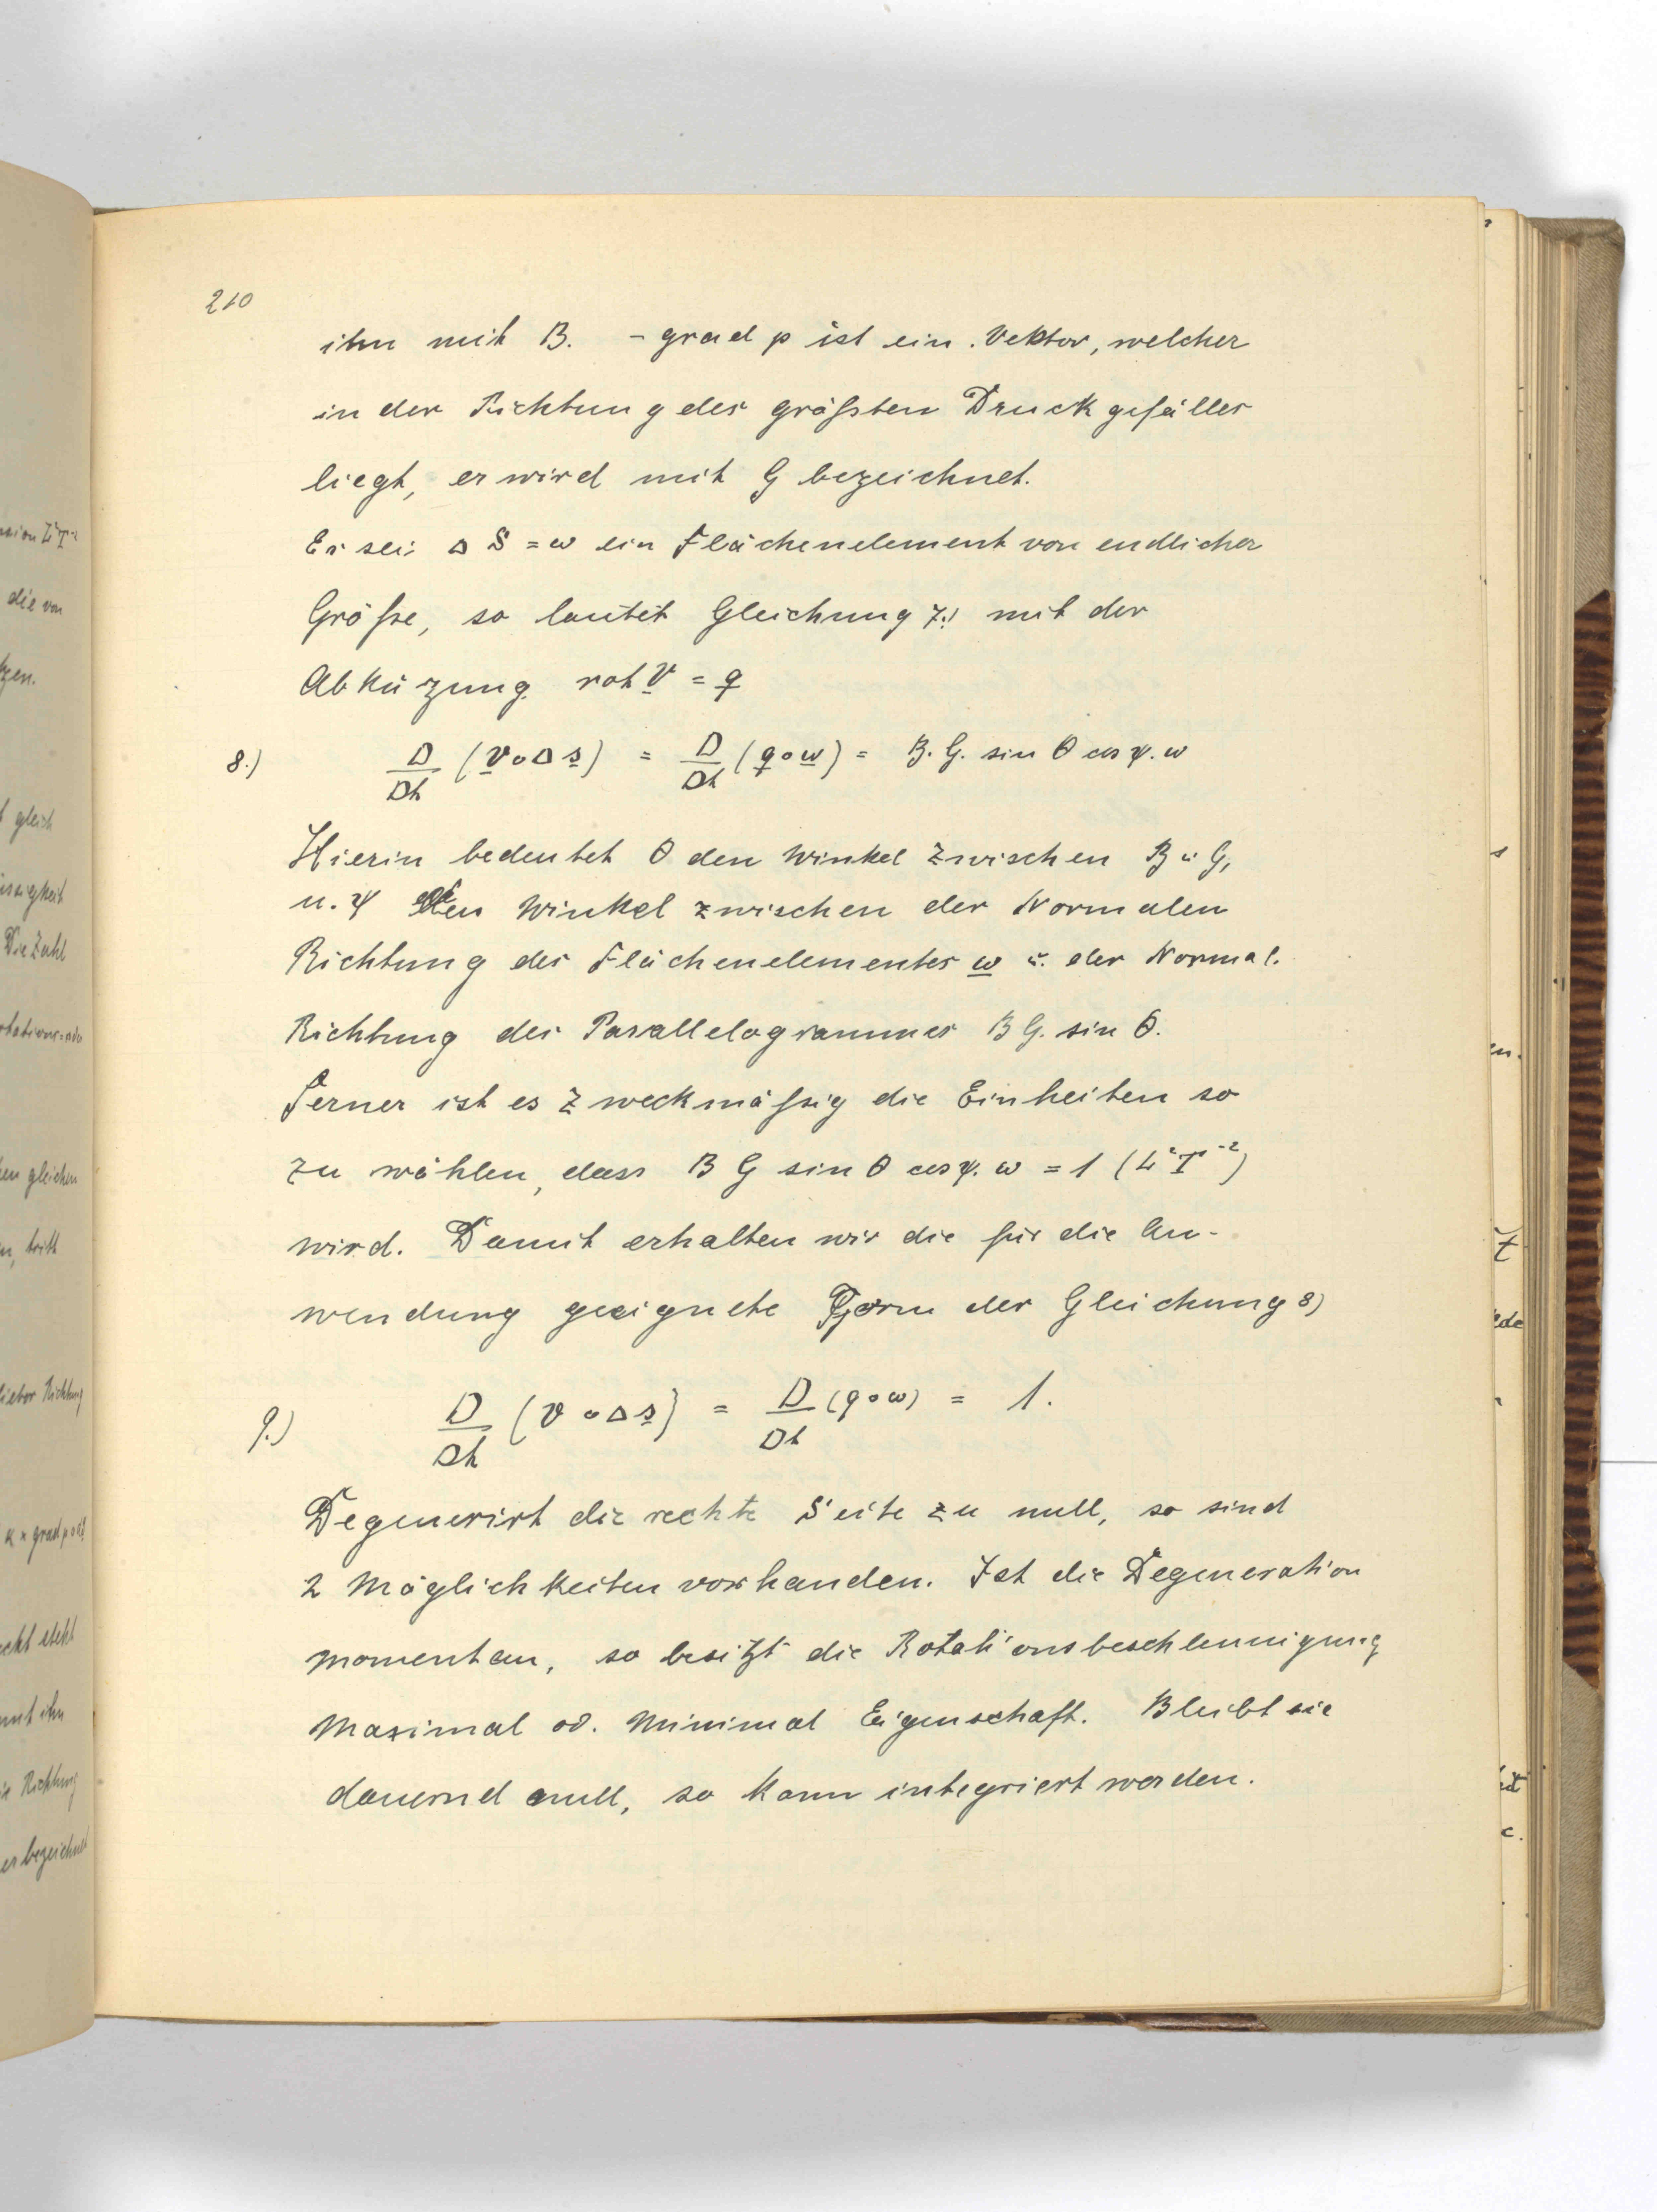 210
ihn mit B. - grad p ist ein Vektor, welcher
in der Richtung des größten Druckgefälles
liegt, er wird mit G bezeichnet.
Es sei Δ S = ω ein Flächenelement von endlicher
Größe, so lautet Gleichung 7.) mit der
Abkürzung rot v = q
8.) D/Dt (v∘Δs) = D/Dt (q∘ω) = B. G. sin θ cos ψ. ω
Hierin bedeutet θ den Winkel zwischen B u G,
u. ψ den Winkel zwischen der Normalen
Richtung des Flächenelementes ω u. der Normal.
Richtung des Parallelogrammes B G. sin θ.
Ferner ist es zweckmäßig die Einheiten so
zu wählen, dass B G sin θ cos ψ. ω = 1 (L²T⁻²)
wird. Damit erhalten wir die für die An-
wendung geeignete Form der Gleichung 8)
9.) D/Dt (v∘Δs) = D/Dt (q∘ω) = 1.
Degenerirt die rechte Seite zu null, so sind
2 Möglichkeiten vorhanden. Ist die Degeneration
momentan, so besitzt die Rotationsbeschleunigung
Maximal od. Minimal Eigenschaft. Bleibt sie
dauernd null, so kann integriert werden.